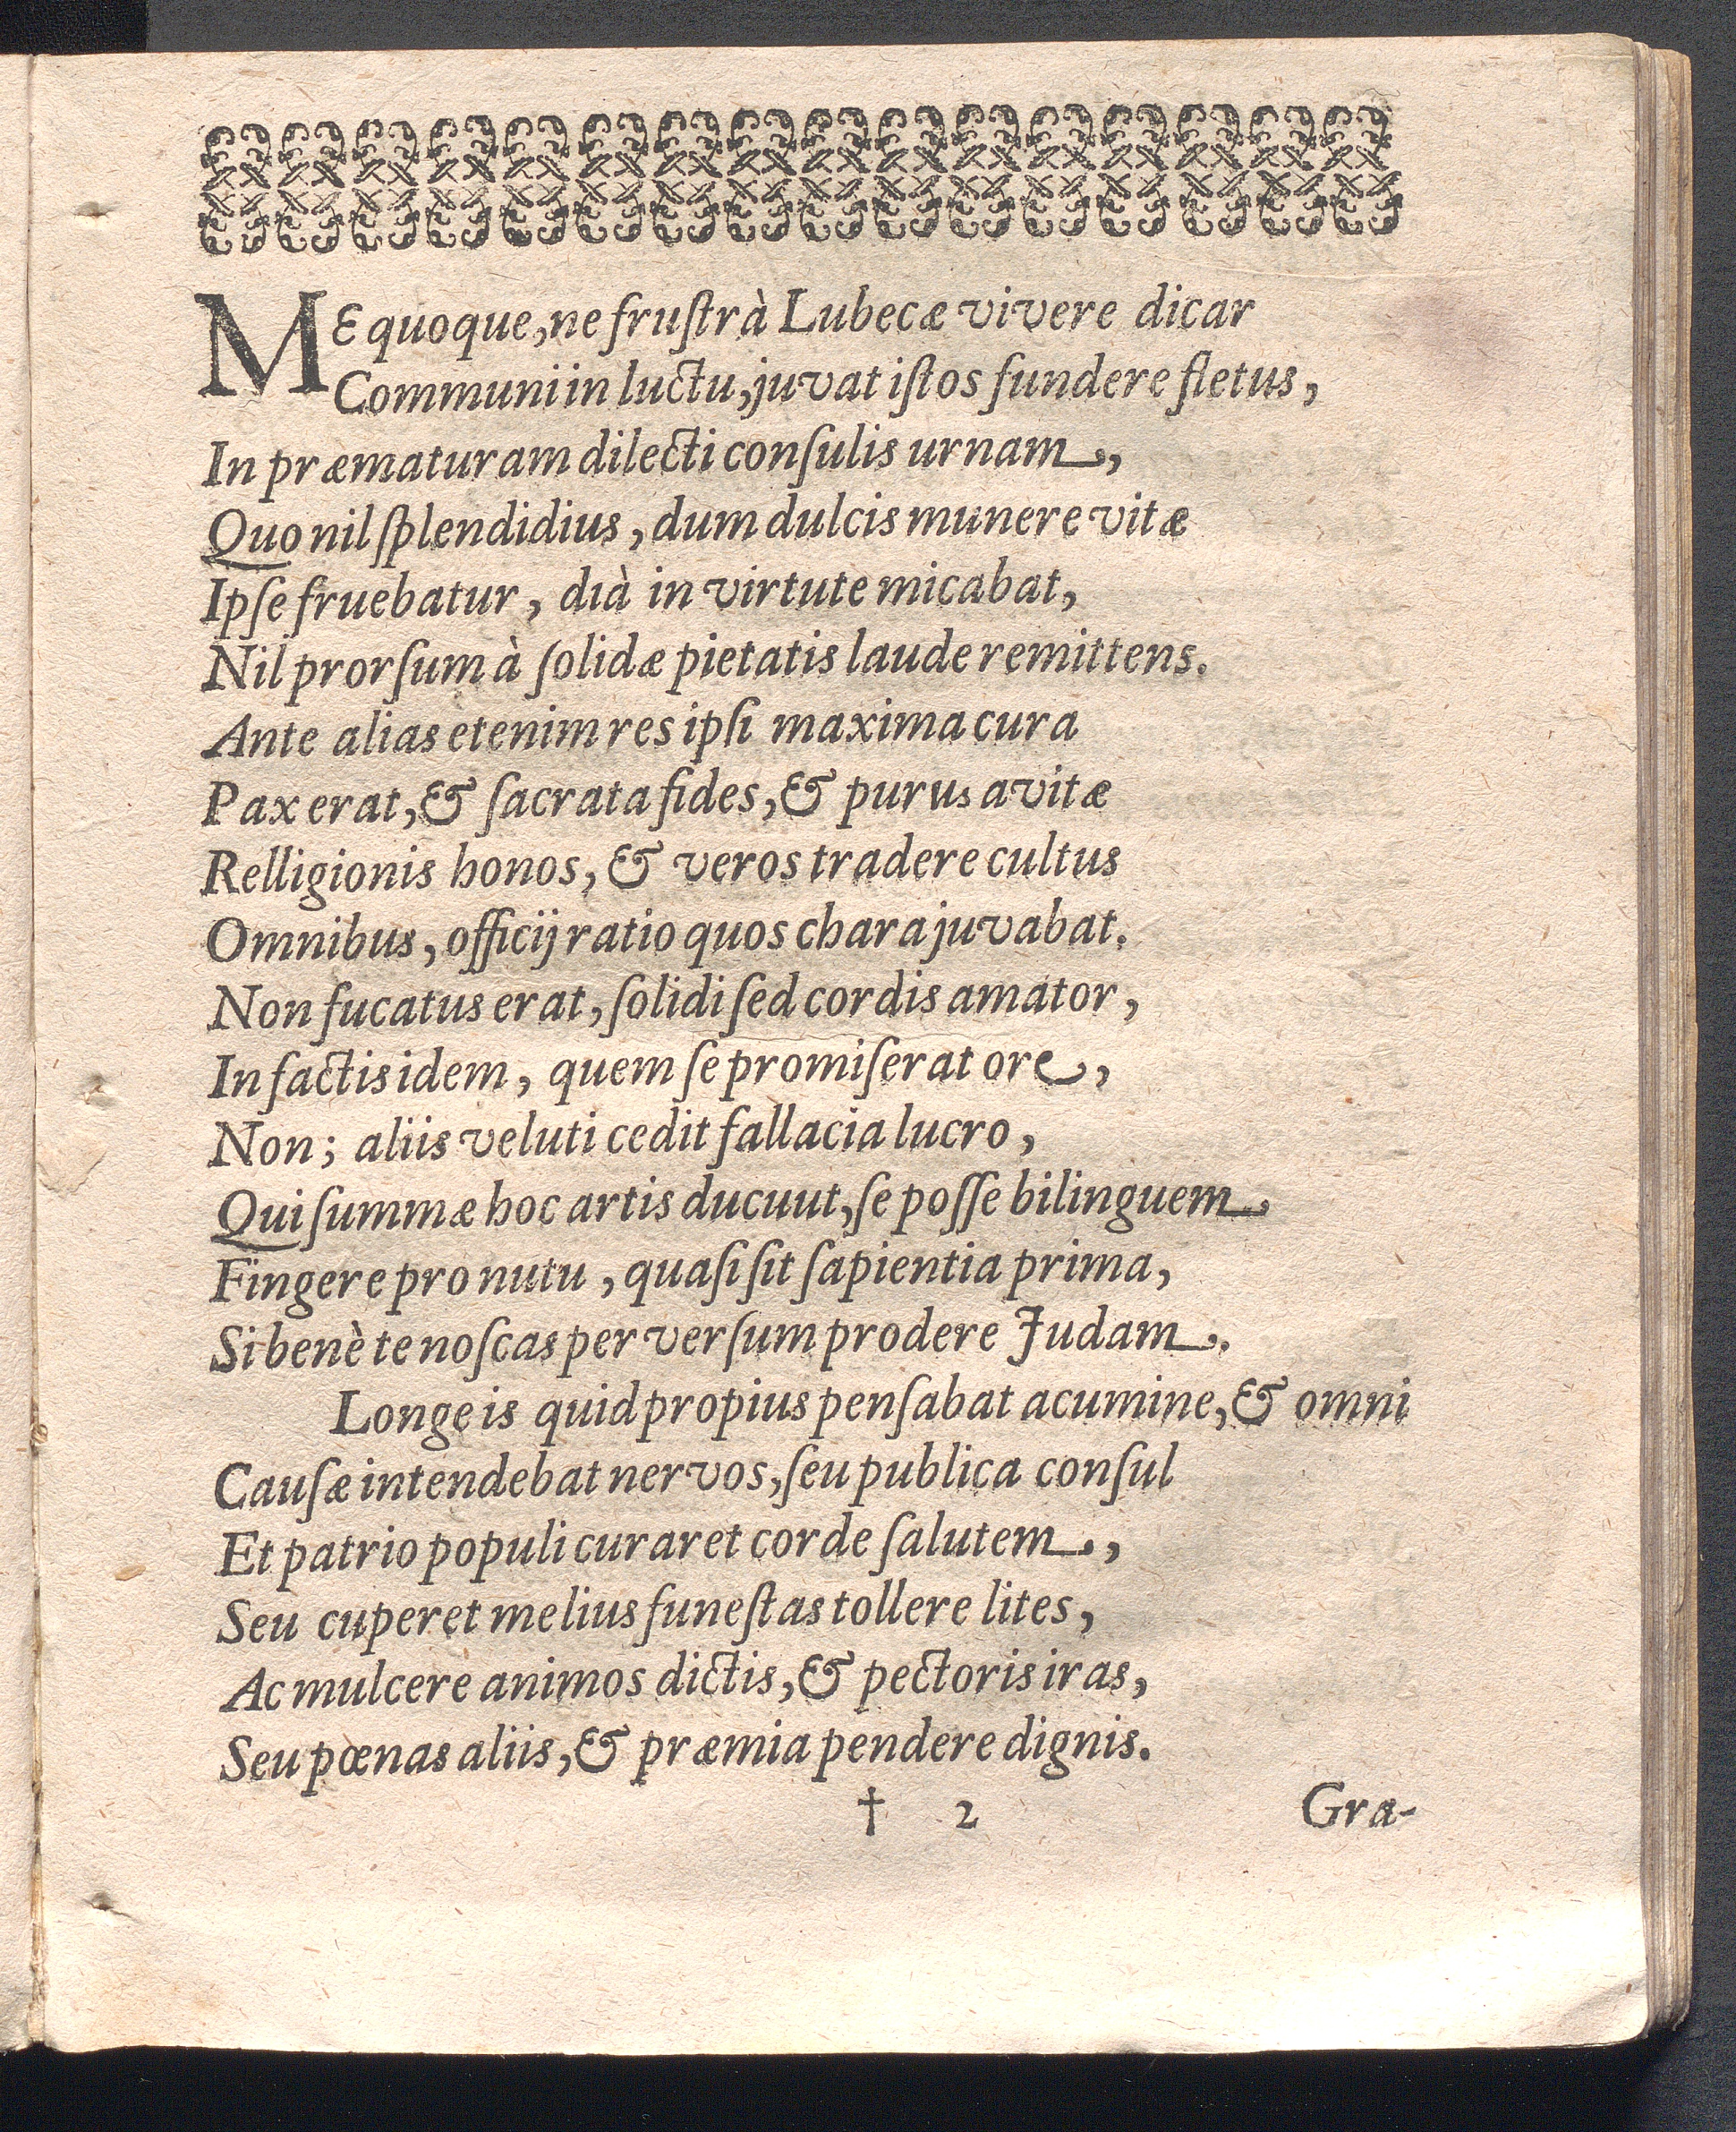 ME quoque, ne fruſtrà Lubecæ vivere dicar
Communi in luctu, juvat iſtos fundere fletus,
In præmaturam dilecti conſulis urnam,
Quo nil ſplendidius, dum dulcis munere vitæ
Ipſe fruebatur, dià in virtute micabat,
Nil prorſum à ſolidæ pietatis laude remittens.
Ante alias etenim res ipſi maxima cura
Pax erat, & ſacrata fides, & purus avitæ
Relligionis honos, & veros tradere cultus
Omnibus, officij ratio quos chara juvabat.
Non fucatus erat, ſolidi ſed cordis amator,
In factis idem, quem ſe promiſerat ore,
Non; aliis veluti cedit fallacia lucro,
Qui ſummæ hoc artis ducuut, ſe poſſe bilinguem
Fingere pro nutu, quaſi ſit ſapientia prima,
Si benè te noſcas perverſum prodere Judam.
Longe is quid propius penſabat acumine, & omni
Cauſæ intendebat nervos, ſeu publica conſul
Et patrio populi curaret corde ſalutem,
Seu cuperet melius funeſtas tollere lites,
Ac mulcere animos dictis, & pectoris iras,
Seu pœnas aliis, & præmia pendere dignis.
† 2 Gra-